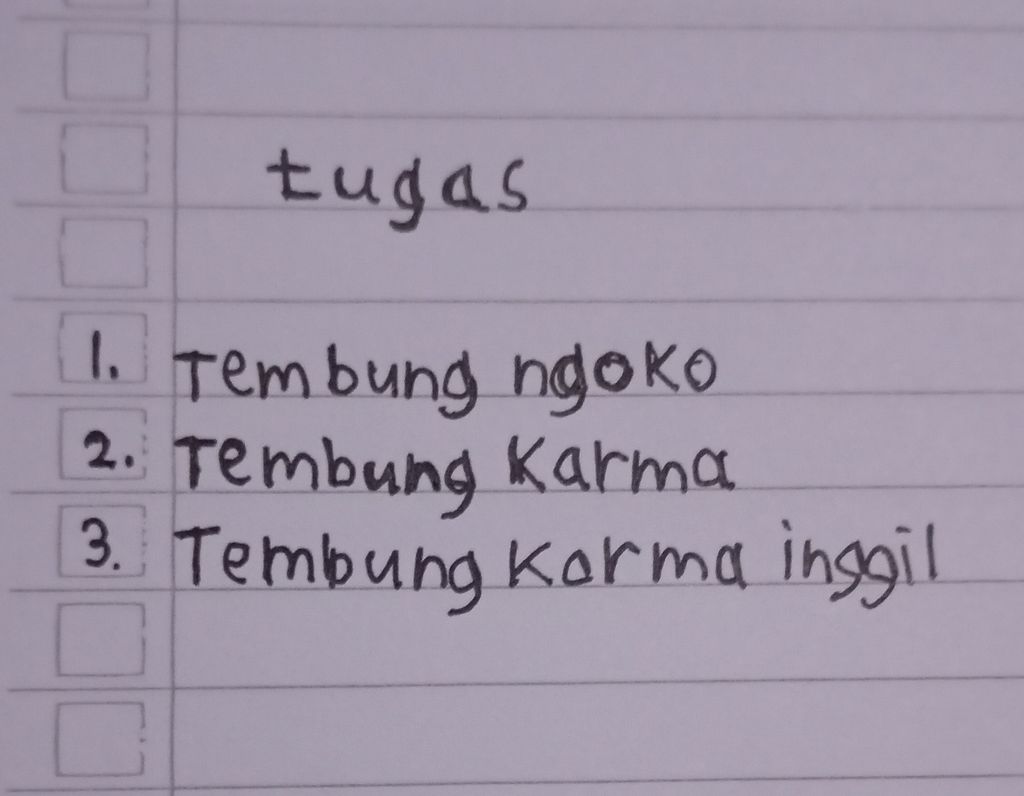 tugas
1. Tembung ngoko
2. Tembung Karma
3. Tembung Karma inggil